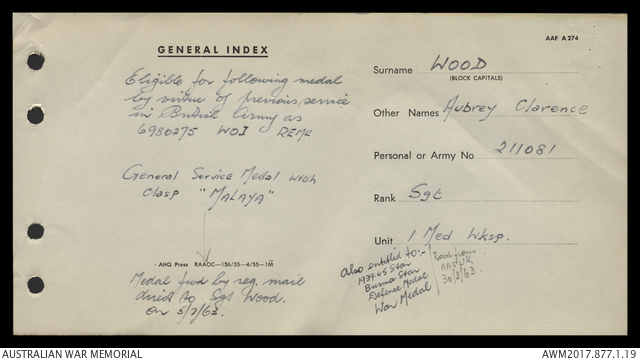 AAF A274
GENERAL INDEX
Eligible for following medal
by virtue of previous service
in British Army as
6980275 WOI REME
General Service Medal with
Clasp "MALAYA"
AHQ Press RAAOC—136/55—4/55—1M
Medal fwd by reg. mail
direct to Sgt Wood.
On 5/7/63.
Surname WOOD
(BLOCK CAPITALS)
Other Names Aubrey Clarence
Personal or Army No 211081
Rank Sgt
Unit 1 Med Wksp.
Also entitled to:-
1939-45 Star
Burma Star
Defence Medal
War Medal
from
30/8/63.
AUSTRALIAN WAR MEMORIAL
AWM2017.877.1.19